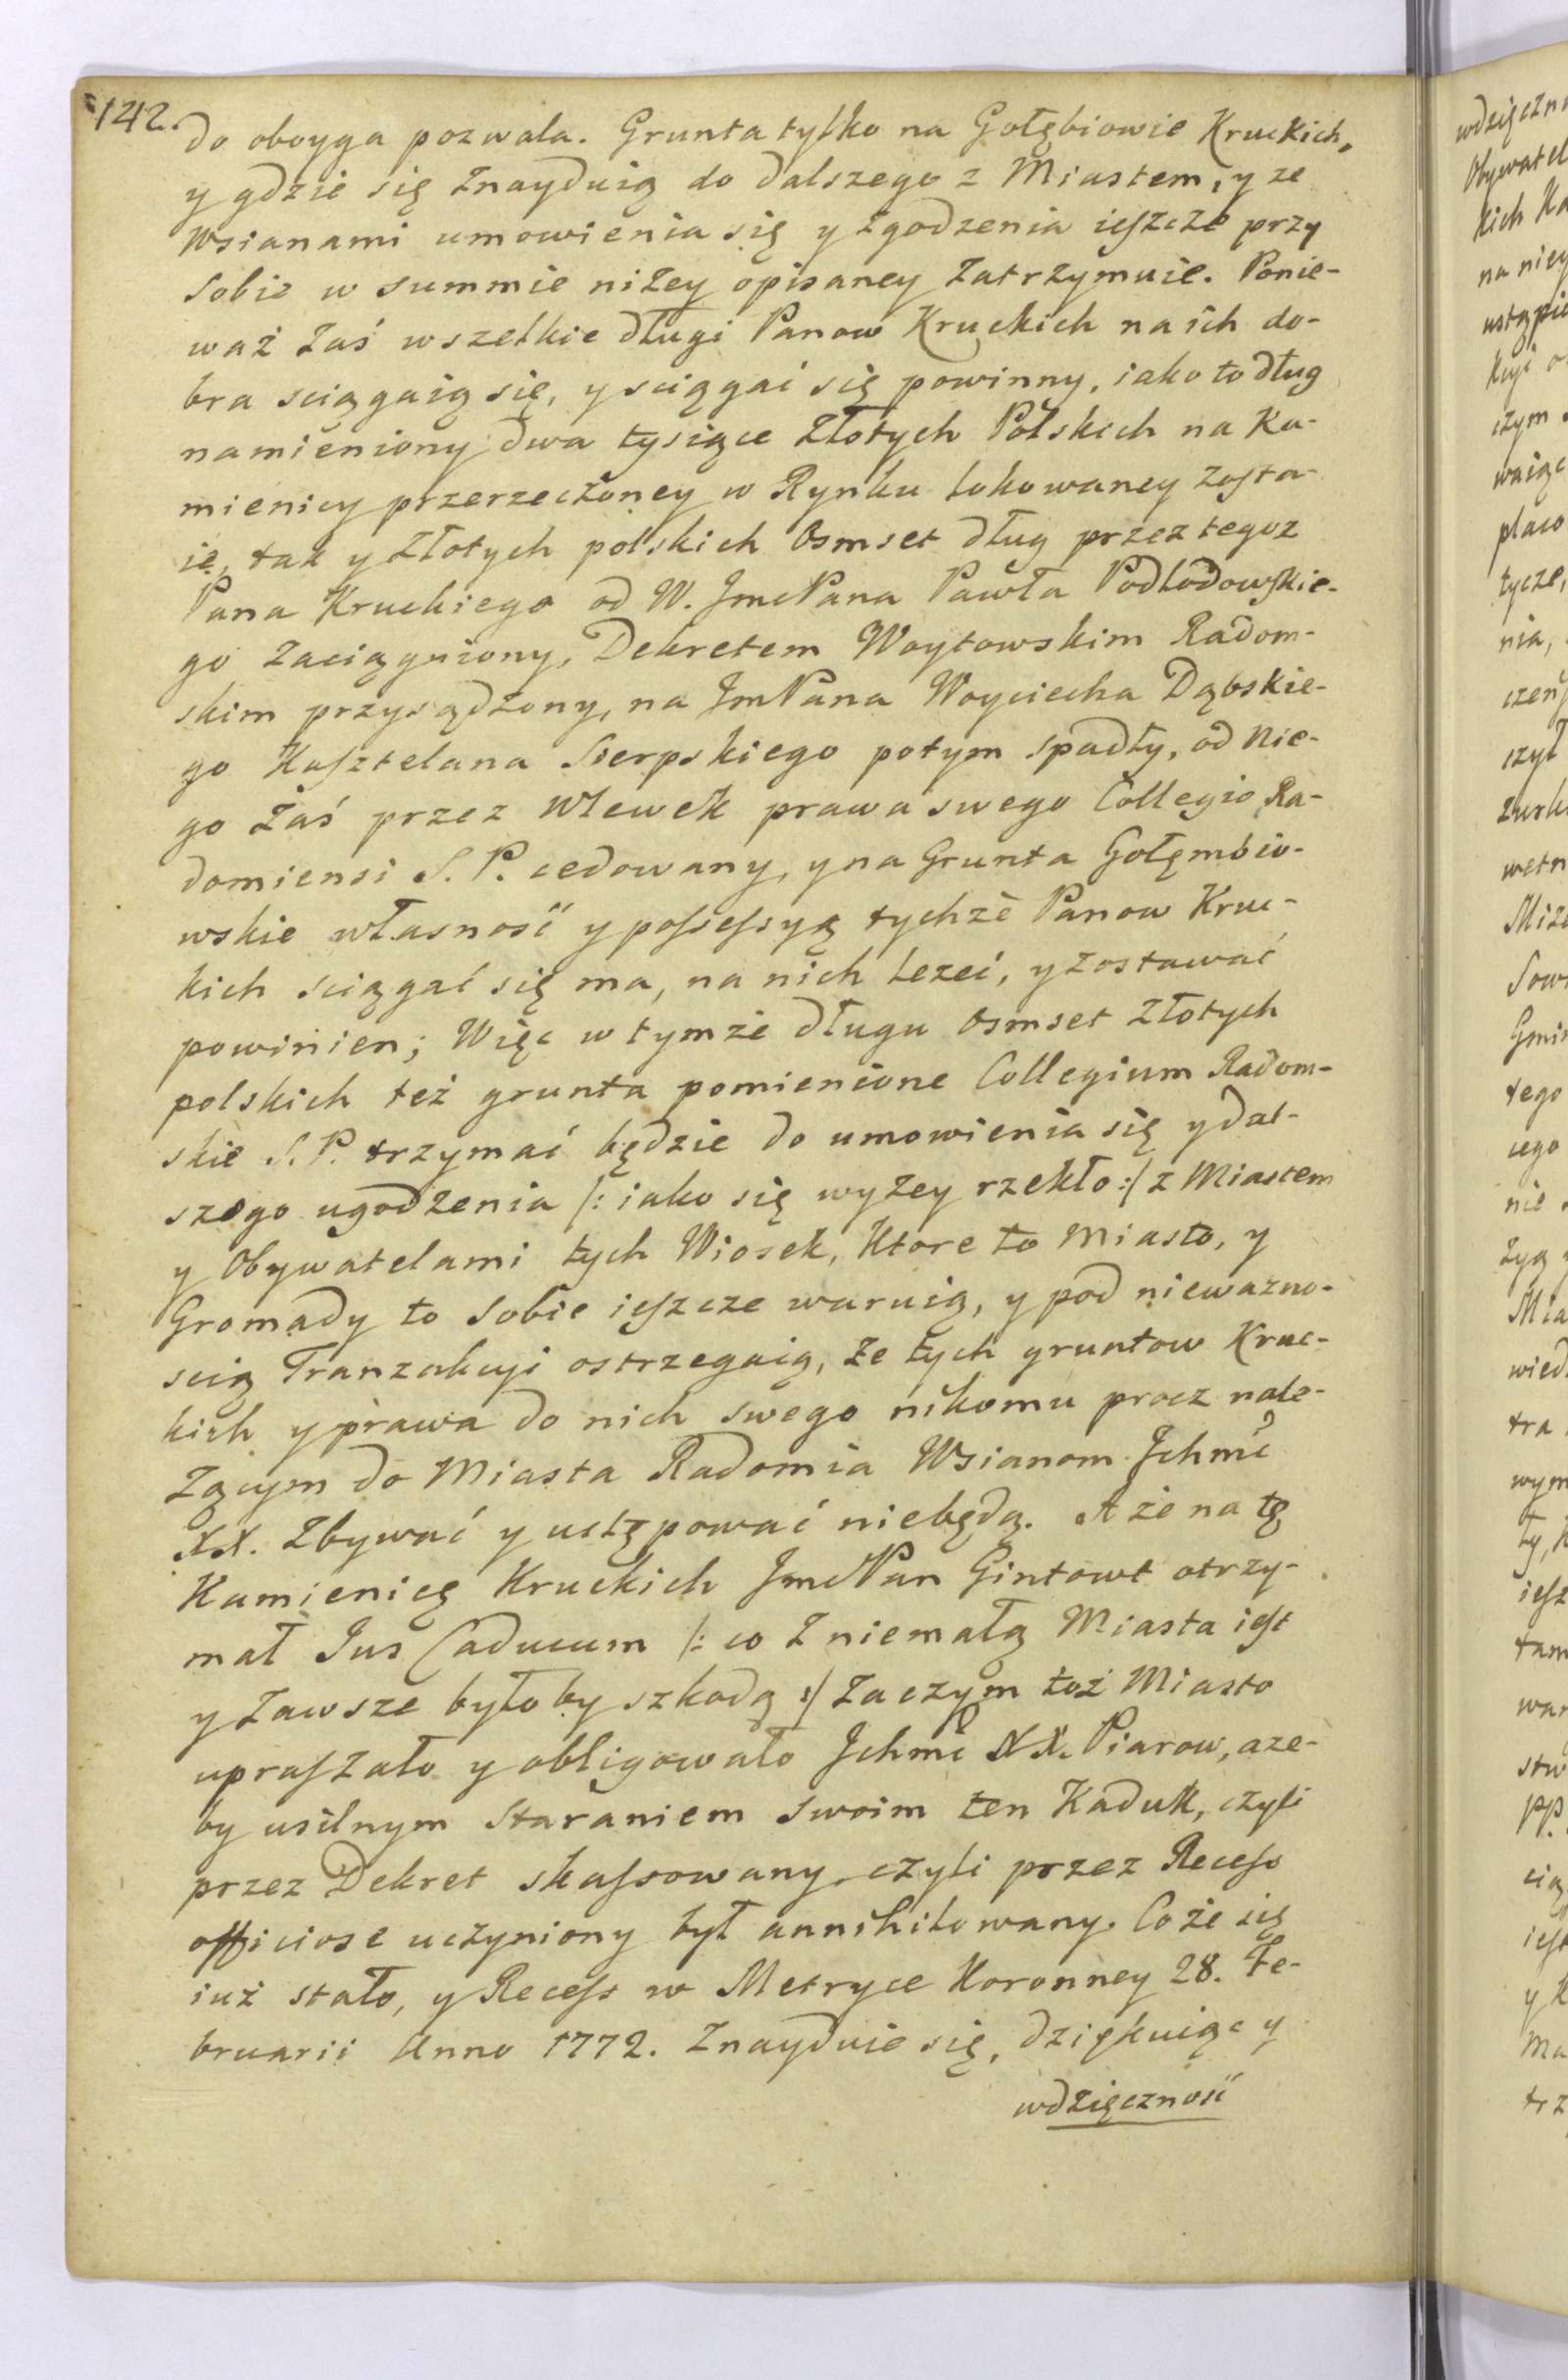 142.
do oboyga pozwala. Grunta tylko na Gołębiowie Kruckich,
y gdzie się znayduią do dalszego z Miastem, y ze
Wsianami umowienia się y zgodzenia ieszcze przy
Sobie w summie niżey opisaney zatrzymuie. Ponie-
waż zaś wszelkie długi Panow Kruckich na ich do-
bra sciągaią się, y sciągać się powinny, iako to dług
namieniony dwa tysiące Złotych Polskich na Ka-
mienicy przerzeczoney w Rynku lokowaney zosta-
ie, tak y Złotych polskich Osmset dług przez tegoz
Pana Kruckiego od W. JmcPana Pawła Podlodowskie-
go zaciągniony, Dekretem Woytowskim Radom-
skim przysądzony, na JmPana Woyciecha Dąbskie-
go Kasztelana Sierpskiego potym spadły, od Nie-
go zaś przez wlewek prawa swego Collegio Ra-
domiensi S. P. cedowany, y na Grunta Gołęmbio-
wskie własność y possessyą tychże Panow Kruc-
kich sciągać się ma, na nich leżeć, y zostawać
powinien; Więc w tymże długu Osmset Złotych
polskich też grunta pomienione Collegium Radom-
skie S. P. trzymać będzie do umowienia się y dal-
szego ugodzenia /: iako się wyżey rzekło :/ z Miastem
y Obywatelami tych Wiosek, Ktore to Miasto, y
Gromady to Sobie ieszcze waruią, y pod niewazno-
scią Tranzakcyi ostrzegaią, że tych gruntow Kruc-
kich y prawa do nich swego nikomu procz nale-
żącym do Miasta Radomia Wsianom Jchmć
XX. Zbywać y ustępować niebędą. A że na tę
Kamienicę Kruckich JmcPan Gintowt otrzy-
mał Jus Caducum /: co z niemałą Miasta iest
y zawsze byłoby szkodą :/ Zaczym toż Miasto
upraszało y obligowało Jchmć XX. Piarow, aze-
by usilnym Staraniem swoim ten Kaduk, czyli
przez Dekret skassowany, czyli przez Recess
officiose uczyniony był annihilowany. Co że się
iuż stało, y Recess w Metryce Koronney 28. Fe-
bruarii Anno 1772. Znayduie się, dziękuiąc y
wdzięczność